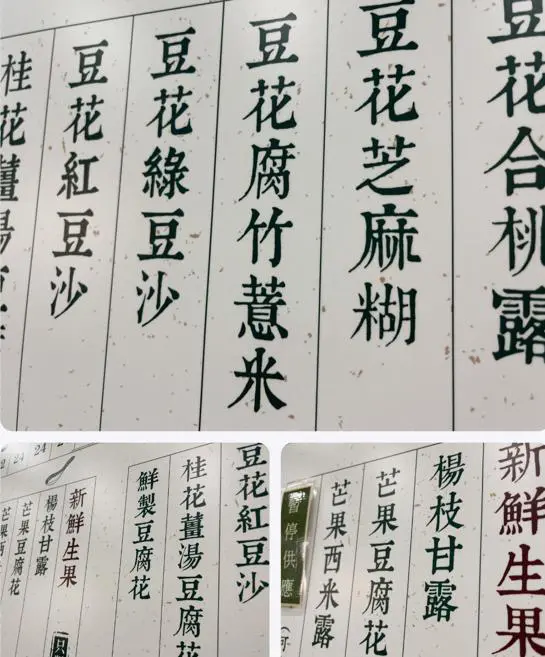 豆花合桃露
豆花芝麻糊
豆花腐竹薏米
豆花綠豆沙
豆花紅豆沙
桂花薑湯豆
豆花紅豆沙
桂花薑湯豆腐花
鮮製豆腐花
新鮮生果
楊枝甘露
芒果豆腐花
芒果西
24
24
新鮮生果
楊枝甘露
芒果豆腐花
芒果西米露
暫停供應